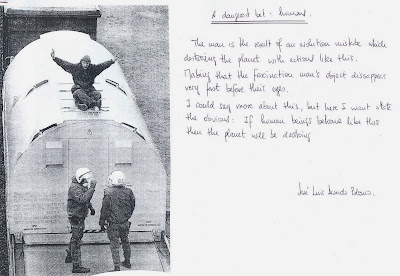 A dangerous bet: humans.
The man is the result of an evolution mistake which
destroying the planet with actions like this.
Making that the fascination man's object dissapear
very fast before their eyes.
I could say more about this, but here I want state
the obvious: If human beings behave like this
then the planet will be destroy
José Luis